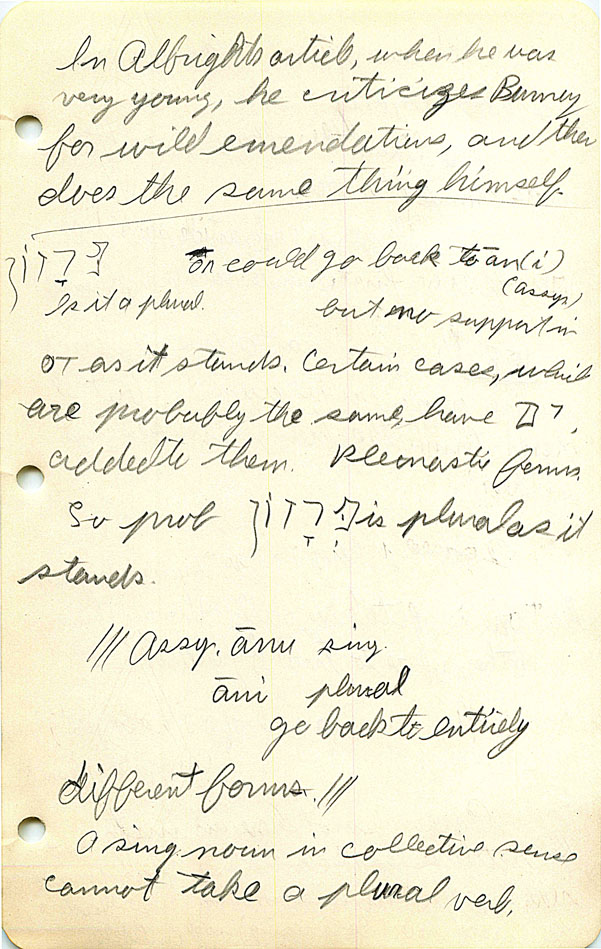 In Albright's article, when he was
very young, he criticizes Burney
for wild emendations, and then
does the same thing himself.
פְּרָזוֹן ōn could go back to ān(i)
(Assyr)
Is it a plural. but no support in
OT as it stands. Certain cases, which
are probably the same, have ים
added to them. Pleonastic forms.
So prob פְּרָזוֹן is plural as it
stands.
/// Assy. ānu sing.
āni plural
go back to entirely
different forms. ///
A sing noun in collective sense
cannot take a plural verb.